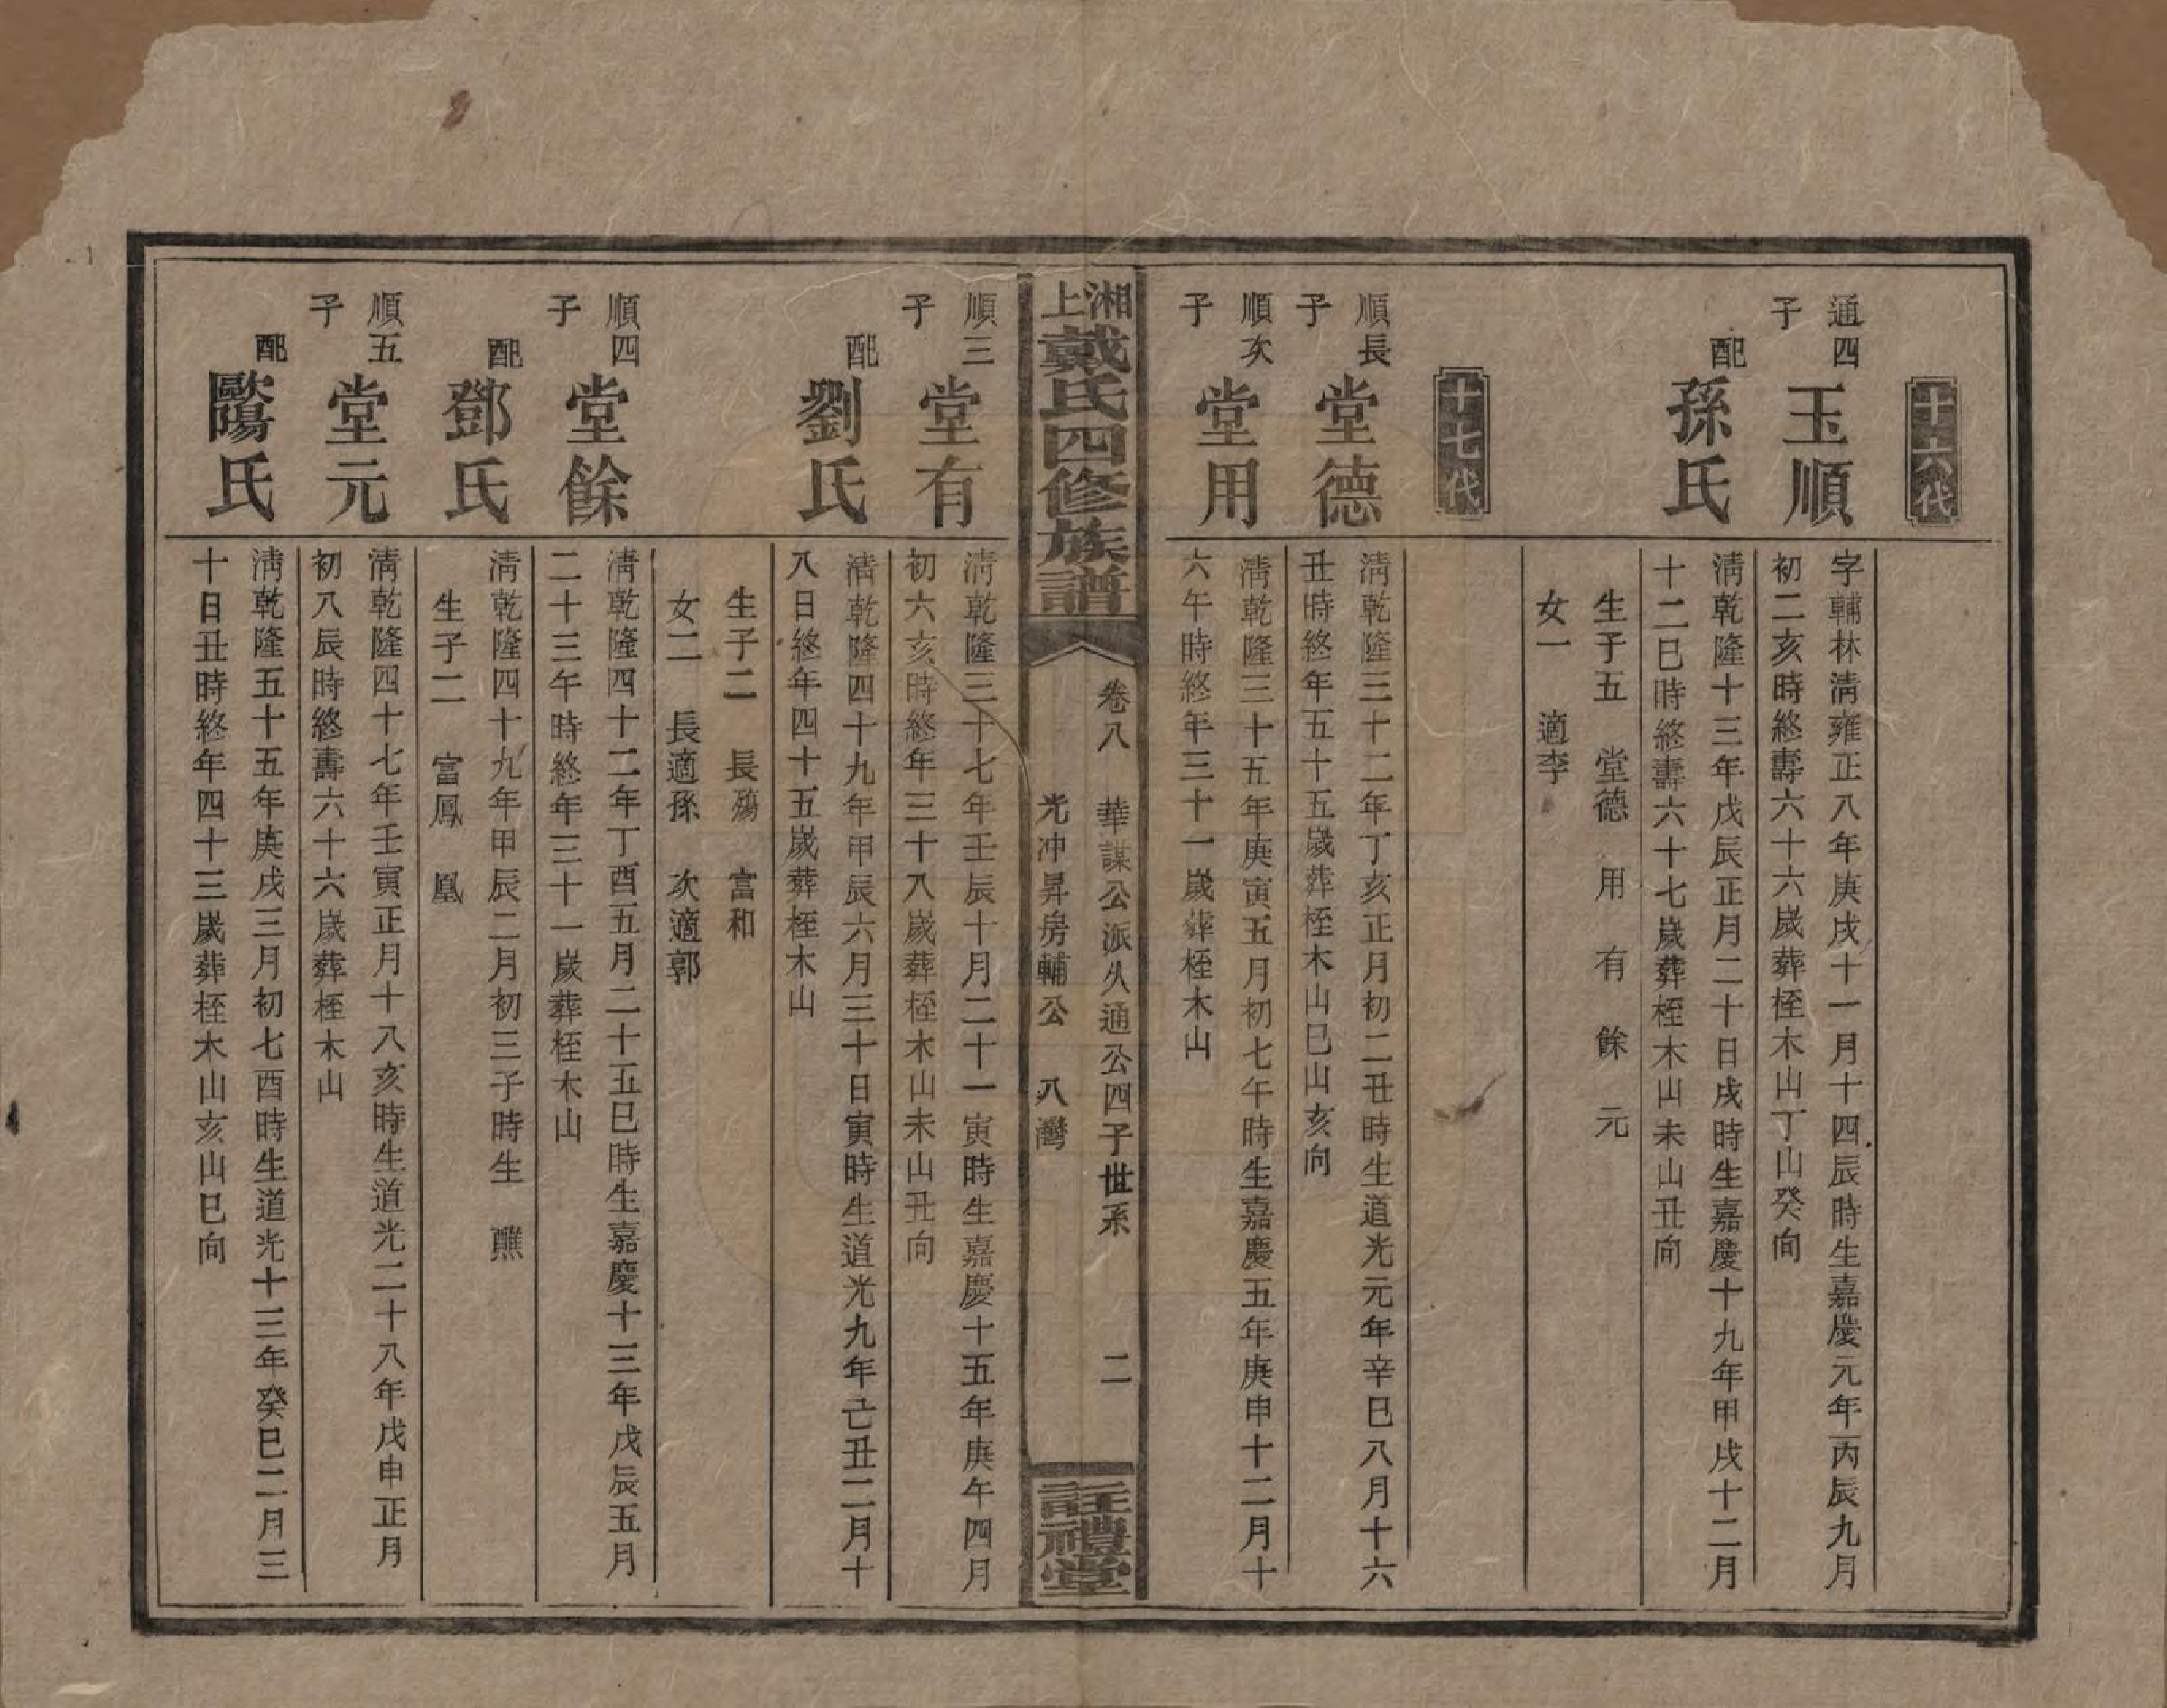 十六代
通四子
玉順
字輔林清雍正八年庚戌十一月十四辰時生嘉慶元年丙辰九月
初二亥時終壽六十六歲葬桎木山丁山癸向
配
孫氏
清乾隆十三年戊辰正月二十日戌時生嘉慶十九年甲戌十二月
十二巳時終壽六十七歲葬桎木山未山丑向
生子五 堂德 用 有 餘 元
女一 適李
十七代
順長子
堂德
清乾隆三十二年丁亥正月初二丑時生道光元年辛巳八月十六
丑時終年五十五歲葬桎木山巳山亥向
順次子
堂用
清乾隆三十五年庚寅五月初七午時生嘉慶五年庚申十二月十
六午時終年三十一歲葬桎木山
湘上戴氏四修族譜
卷八 華謀公派久通公四子世系 二
光冲昇房輔公 八灣
註禮堂
順三子
堂有
清乾隆三十七年壬辰十月二十一寅時生嘉慶十五年庚午四月
初六亥時終年三十八歲葬桎木山未山丑向
配
劉氏
清乾隆四十九年甲辰六月三十日寅時生道光九年己丑二月十
八日終年四十五歲葬桎木山
生子二 長殤 富和
女二 長適孫 次適郭
順四子
堂餘
清乾隆四十二年丁酉五月二十五巳時生嘉慶十三年戊辰五月
二十三午時終年三十一歲葬桎木山
配
鄧氏
清乾隆四十九年甲辰二月初三子時生 醮
生子二 富鳳 凰
順五子
堂元
清乾隆四十七年壬寅正月十八亥時生道光二十八年戊申正月
初八辰時終壽六十六歲葬桎木山
配
歐陽氏
清乾隆五十五年庚戌三月初七酉時生道光十三年癸巳二月三
十日丑時終年四十三歲葬桎木山亥山巳向